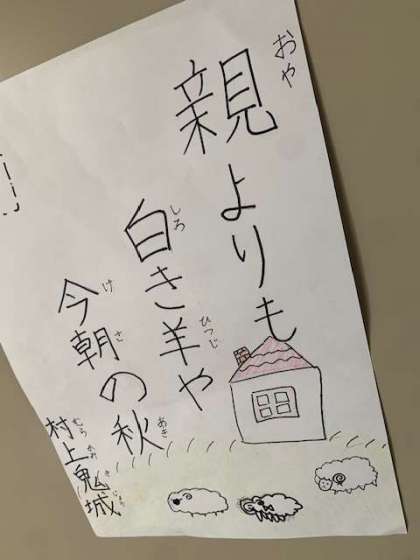 親よりも
おや
白き羊や
しろ ひつじ
今朝の秋
けさ あき
村上鬼城
むらかみ きじょう